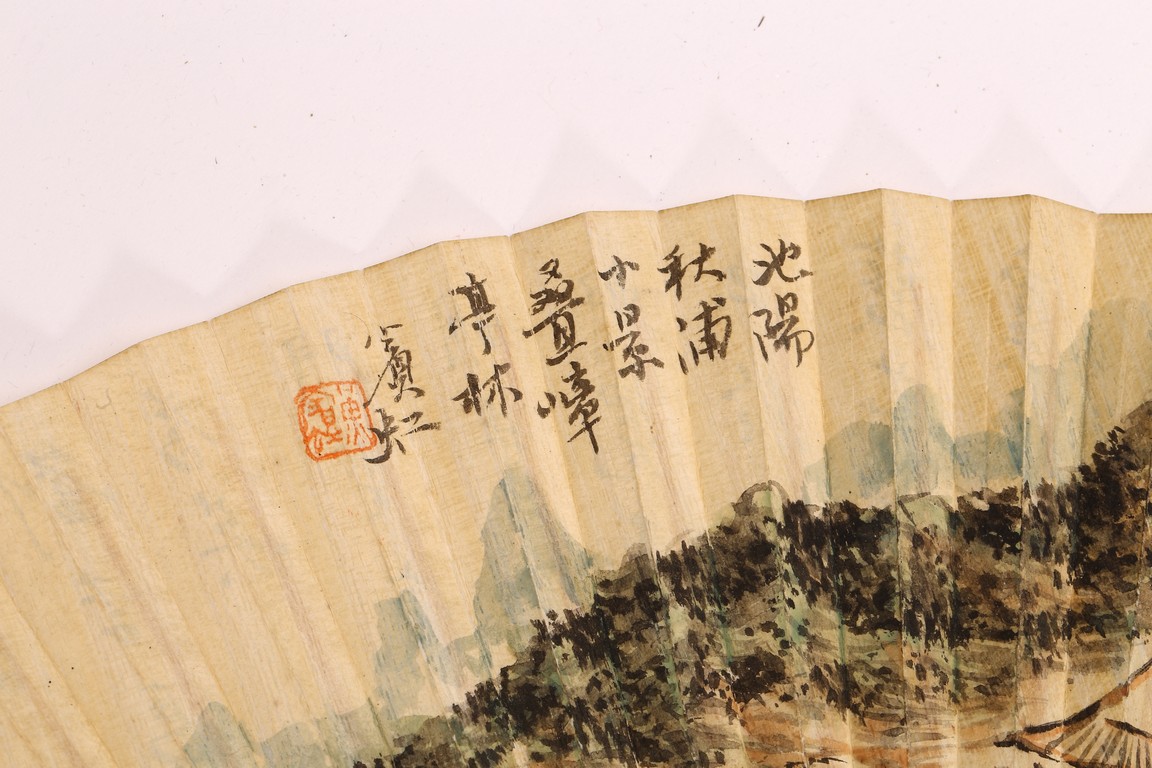 池陽
秋浦
小景
疊嶂
亭林
賓虹